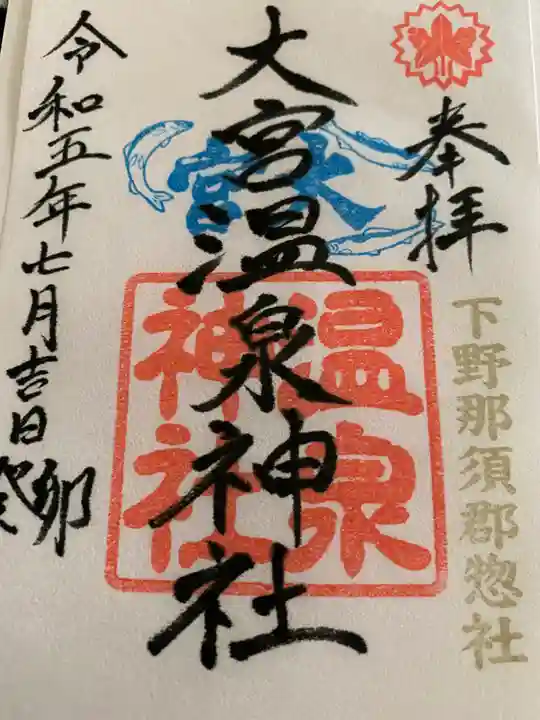 奉拝
下野那須郡惣社
大宮温泉神社
大宮
温泉
神社
令和五年七月吉日
癸卯